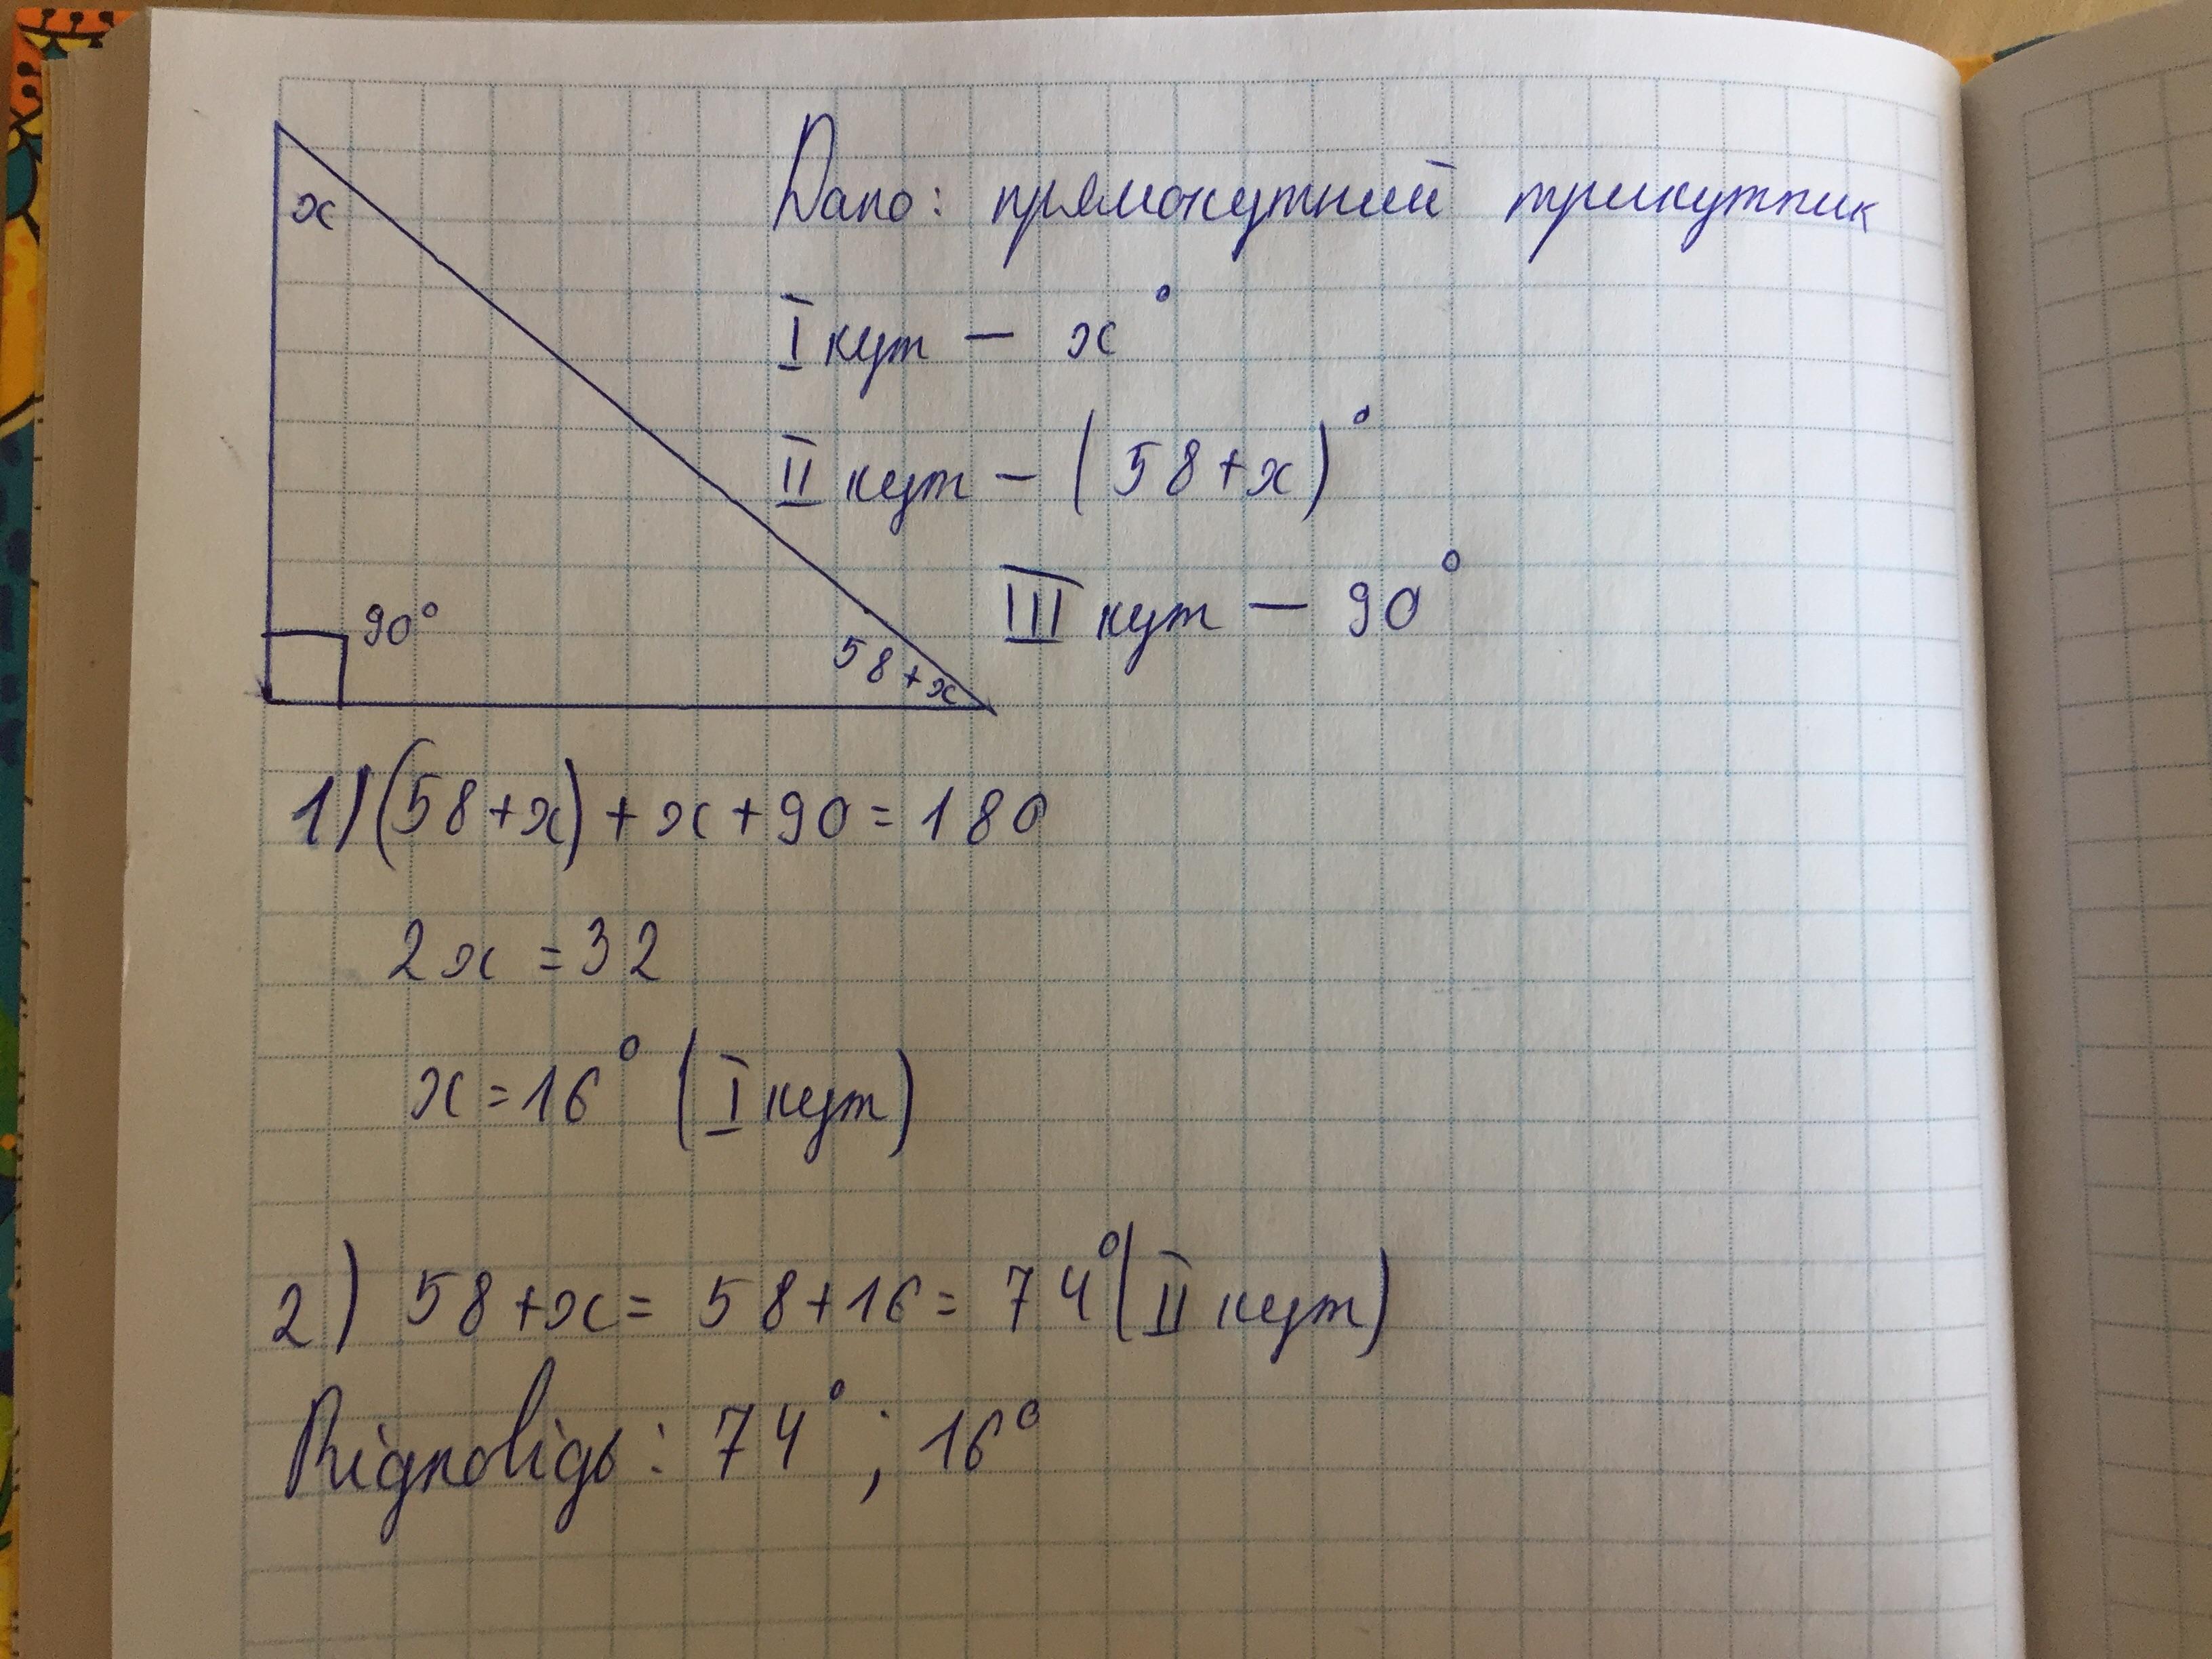 Дано: прямокутний трикутник
x
I кут – x°
II кут – (58+x)°
III кут – 90°
90°
58+x
1) (58+x)+x+90=180
2x=32
x=16° (I кут)
2) 58+x= 58+16= 74° (II кут)
Відповідь: 74°; 16°